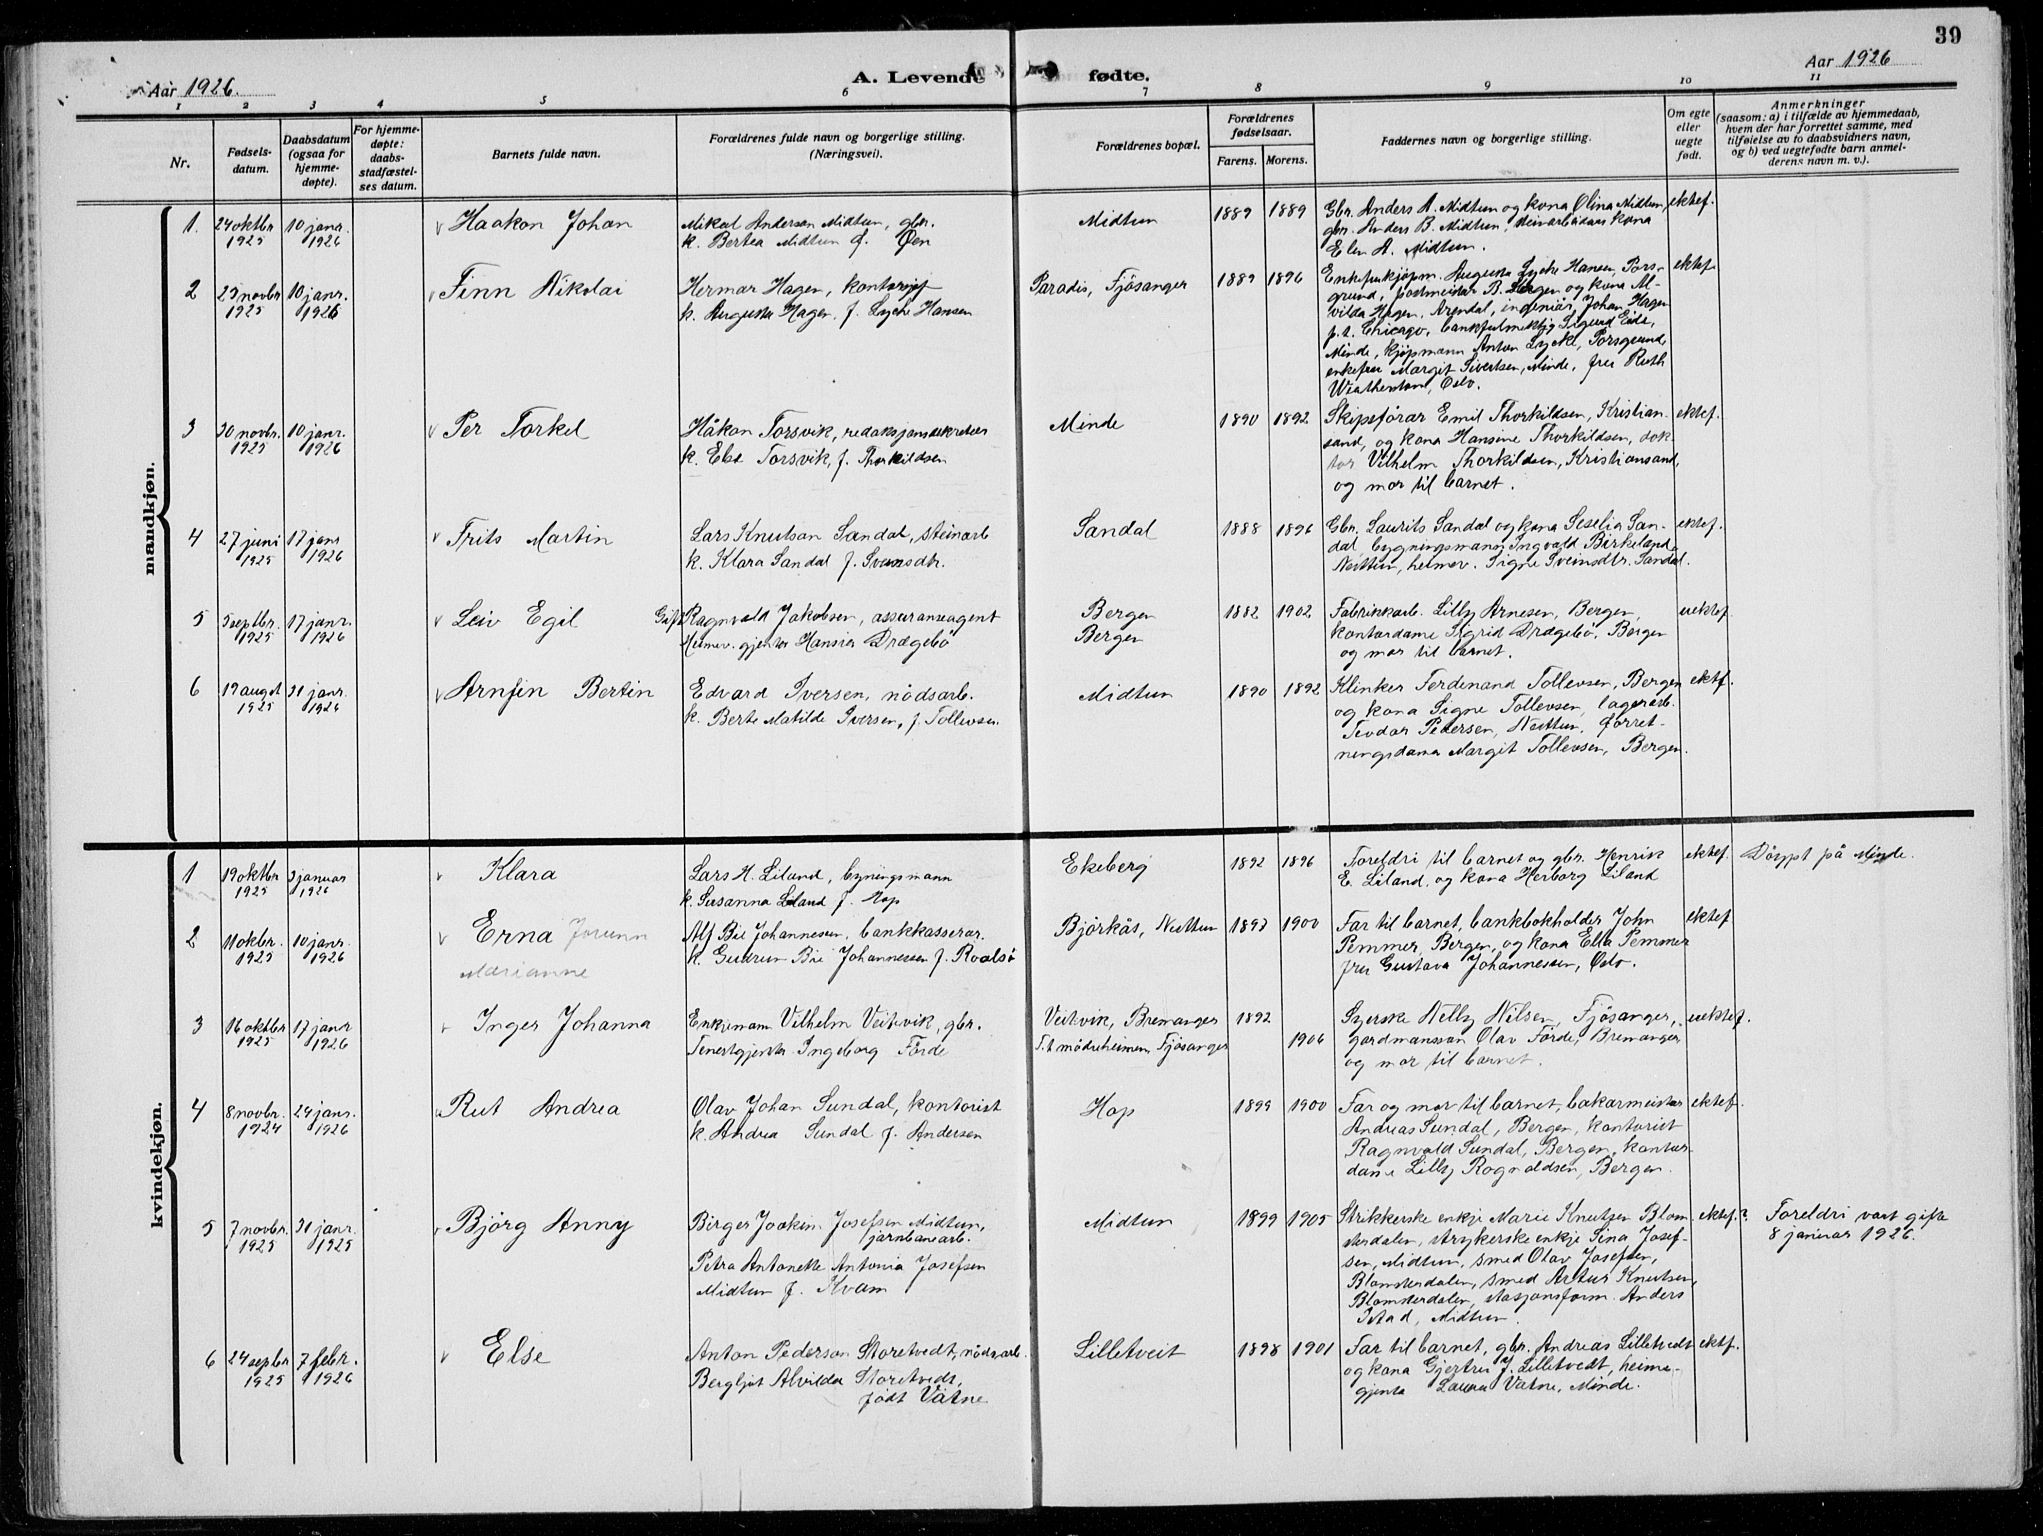 39
Aar 1926. A. Levende fødte. Aar 1926
1 2 3 4 5 6 7 8 9 10 11
Nr.
Fødsels-
datum.
Daabsdatum
(ogsaa for
hjemme-
døpte).
For hjemme-
døpte:
daabs-
stadfæstel-
ses datum.
Barnets fulde navn.
Forældrenes fulde navn og borgerlige stilling.
(Næringsvei).
Forældrenes bopæl.
Forældrenes
fødselsaar.
Farens. Morens.
Faddernes navn og borgerlige stilling.
Om egte
eller
uegte
født.
Anmerkninger
(saasom: a) i tilfælde av hjemmedaab,
hvem der har forrettet samme, med
tilføielse av to daabsvidners navn,
og b) ved uegtefødte barn anmel-
derens navn m. v.).
mandkjøn.
1. 24 oktbr 1925
10 janr. 1926
Haakon Johan
Mikal Andersen Midtun, gbr.
k. Bertea Midtun f. Øen
Midtun
1889 1889
Gbr. Anders A. Midtun og kona Olina Midtun,
gbr. Anders B. Midtun, steinarbeidars kona
Elen A. Midtun.
ektef.
2 25 novbr 1925
10 janr. 1926
Finn Nikolai
Hermar Hagen, kontorsjef
k. Augusta Hagen, f. Lyche Hansen
Paradis, Fjøsanger
1889 1896
Enkefru kjøpm. Augusta Lyche Hansen, Pors-
grund, postmeister B. Hagen og kona Al-
vilda Hagen, Arendal, ingeniør Johan Hagen
p. t. Chicago, bankfulmektig Sigurd Eide,
Minde, kjøpmann Anton Lyche, Porsgrund,
enkefru Margit Sivertsen, Minde, fru Ruth
Oslo.
ektef.
3 30 novbr. 1925
10 janr. 1926
Per Torkel
Håkon Torsvik, redaksjonssekretær
k. Else Torsvik, f. Thorkildsen
Minde
1890 1892
Skipsførar Emil Thorkildsen, Kristian-
sand, og kona Hansine Thorkildsen, dok-
tor Vilhelm Thorkildsen, Kristiansand,
og mor til barnet.
ektef.
4 27 juni 1925
17 janr 1926
Frits Martin
Lars Knutson Sandal, steinarb
k. Klara Sandal f. Svensdtr.
Sandal
1888 1896
Gbr. Laurits Sandal og kona Seselia San-
dal, bygningsmann Ingvald Birkeland,
Nesttun, heimev. Signe Sveinsdtr. Sandal.
ektef.
5 5 septbr. 1925
17 janr. 1926
Leiv Egil
Gift Ragnvald Jakobsen, assuranseagent
Heimev. gjenta Hansine Drægebø
Bergen
Bergen
1882 1902
Fabrikkarb. Lilly Arnesen, Bergen,
kontordame Sigrid Drægebø, Bergen
og mor til barnet.
uektef.
6 19 augst 1925
31 janr. 1926
Arnfin Bertin
Edvard Iversen, nødsarb.
k. Berte Matilde Iversen, f. Tollevsen.
Midtun
1890 1892
Klinker Ferdinand Tollevsen, Bergen
og kona Signe Tollevsen, lagerarb.
Teodor Pedersen, Nesttun, forret-
ningsdama Margit Tollevsen, Bergen.
ektf.
kvindekjøn.
1 19 oktbr 1925
3 januar 1926
Klara
Lars H. Liland, bygningsmann
k. Susanna Liland f. Hop
Ekeberg
1892 1896
Foreldri til barnet og gbr. Henrik
E. Liland, og kona Herborg Liland
ektef.
Døypt på Minde.
2 11 okbr. 1925
10 janr. 1926
Erna Jorunn
Marianne
Alf Bie Johannessen, bankkasserar.
k. Gudrun Bie Johannessen f. Roalsø
Bjørkås, Nesttun
1893 1900
Far til barnet, bankbokholder John
Pemmer, Bergen, og kona Ella Pemmer
fru Gustava Johannessen, Oslo.
ektef
3 16 oktbr 1925
17 janr 1926
Inger Johanna
Enkjemann Vilhelm Veitvik, gbr.
Tenestgjenta Ingeborg Førde
Veitvik, Bremanger
T.t mødreheimen, Fjøsanger
1892
1906
Syerske Nelly Nilsen, Fjøsanger,
gardmansson Olav Førde, Bremanger,
og mor til barnet.
uektef.
4 8 novbr. 1924
24 janr. 1926
Rut Andrea
Olav Johan Sundal, kontorist
k. Andrea Sundal f. Andersen
Hop
1899 1900
Far og mor til barnet, bakarmeistar
Andreas Sundal, Bergen, kontorist
Ragnvald Sundal, Bergen, kontor-
dame Lilly Rognaldsen, Bergen.
ektef.
5 7 novbr. 1925
31 janr. 1925
Bjørg Anny
Birger Joakim Josefsen Midtun,
jarnbanearb.
Petra Antonette Antonia Josefsen
Midtun f. Kvam
Midtun
1899 1905
Strikkerske enkje Marie Knutsen Blom-
sterdalen, strykerske enkje Sina Josef-
sen, Midtun, smed Olav Josefsen,
Blomsterdalen, smed Artur Knutsen,
Blomsterdalen, stasjonsform. Anders
Midtun.
ektef.?
Foreldri vart gifte
8 januar 1926.
6 24 sepbr 1925
7 febr. 1926
Else
Anton Pederson Storetvedt, nødsarb.
Bergljot Alvilda Storetvedt,
født Vatne
Lilletveit
1898 1901
Far til barnet, gbr. Andreas Lilletvedt
og kona Gjertru J. Lilletvedt, heime-
gjenta Laura Vatne, Minde.
ektf.